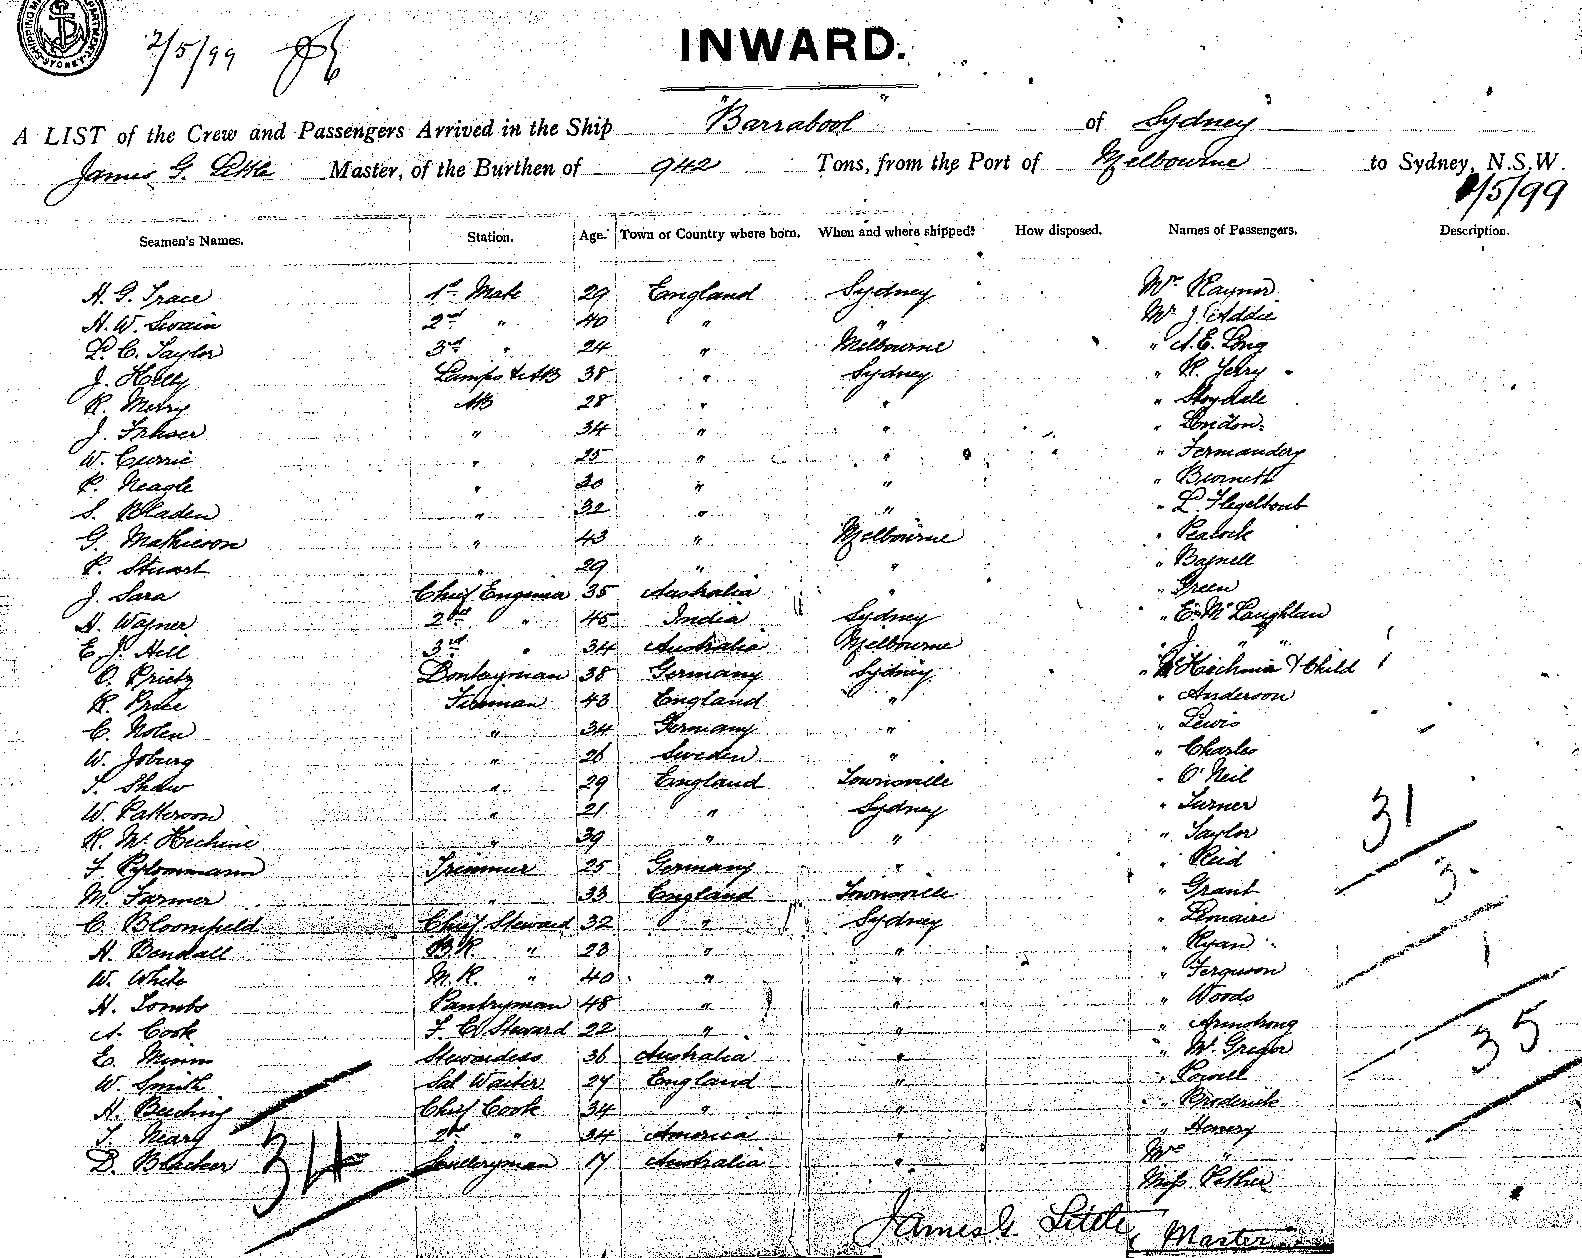 2/5/99
INWARD.
A LIST of the Crew and Passengers Arrived in the Ship "Barrabool" of Sydney
James G. Little Master, of the Burthen of 942 Tons, from the Port of Melbourne to Sydney, N.S.W.
2/5/99
Seamen's Names. Station. Age. Town or Country where born. When and where shipped. How disposed. Names of Passengers. Description.
H. G. Trace 1st Mate 29 England Sydney Mr Raynor
H. W. Swain 2nd " 40 " " Mr J Addie
L. C. Taylor 3rd " 24 " Melbourne " A. E. Long
J. Kelly Lamps & AB 38 " Sydney " R. Terry
R. Merry AB 28 " "
J. Fraser " 34 " " " London
W. Currie " 25 " " " Fernandez
P. Neagle " 30 " "
S. Bladen " 32 " "
G. Mathieson " 43 " Melbourne " Peacock
P. Stuart 29 " " " Bagnell
J. Sara Chief Engineer 35 Australia " " Green
H. Wagner 2nd " 45 India Sydney " E. McLaughlan
E. J. Hill 3rd " 34 Australia Melbourne " J " "
O. Prietz Donkeyman 38 Germany Sydney " & Child
R. Price Fireman 43 England " " Anderson
C. Nolen " 34 Germany " " Lewis
W. Joburg " 26 Sweden " " Charles
T. Shaw " 29 England Townsville " O'Neil
W. Patterson " 21 " Sydney " Turner
R. " 39 " " " Taylor
F. Trimmer 25 Germany " " Reid
M. Farmer " 33 England Townsville " Grant
C. Bloomfield Chief Steward 32 " Sydney " Lemaire
H. Bendall B.R. " 23 " " " Ryan
W. White M.R. " 40 " " " Ferguson
H. Tombs Pantryman 48 " " " Woods
A. Cook F. C. Steward 22 " " " Armstrong
E. Stewardess 36 Australia " " McGregor
W. Smith Sal Waiter 27 England " " Powell
H. Beeching Chief Cook 34 " " " Broderick
T. Neary 2nd " 34 America " " Henery
D. Blacker Sculleryman 17 Australia " Mrs "
Miss
31
3
1
35
34
James G. Little Master